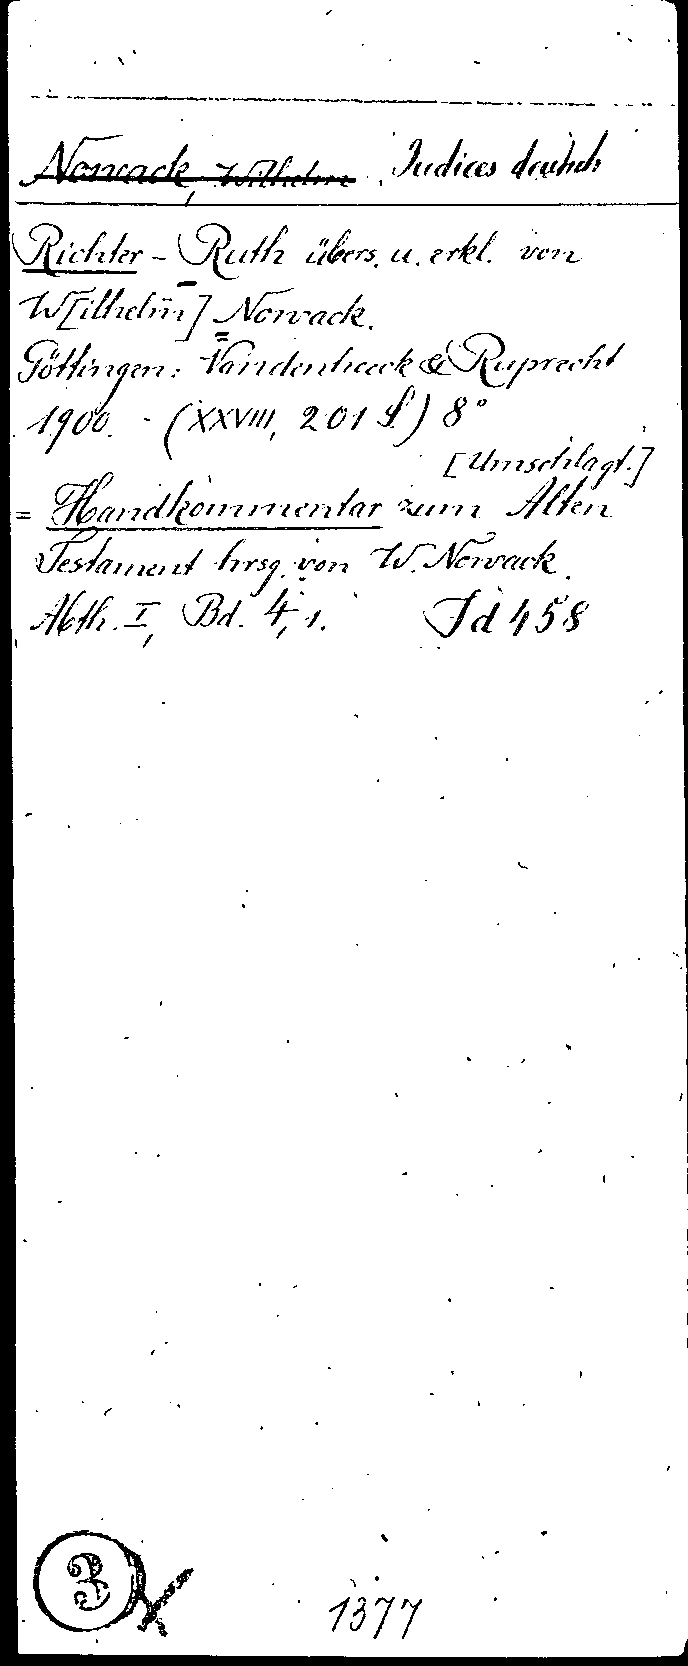 Nowack, Wilhelm. Iudices deutsch
Richter - Ruth übers. u. erkl. von
W[ilhelm] Nowack.
Göttingen: Vandenhoeck & Ruprecht
1900. - (XXVIII, 201 S.) 8°
[Umschlagt.]
= Handkommentar zum Alten
Testament hrsg. von W. Nowack.
Abth. I, Bd. 4, 1. Id 458
3
1377